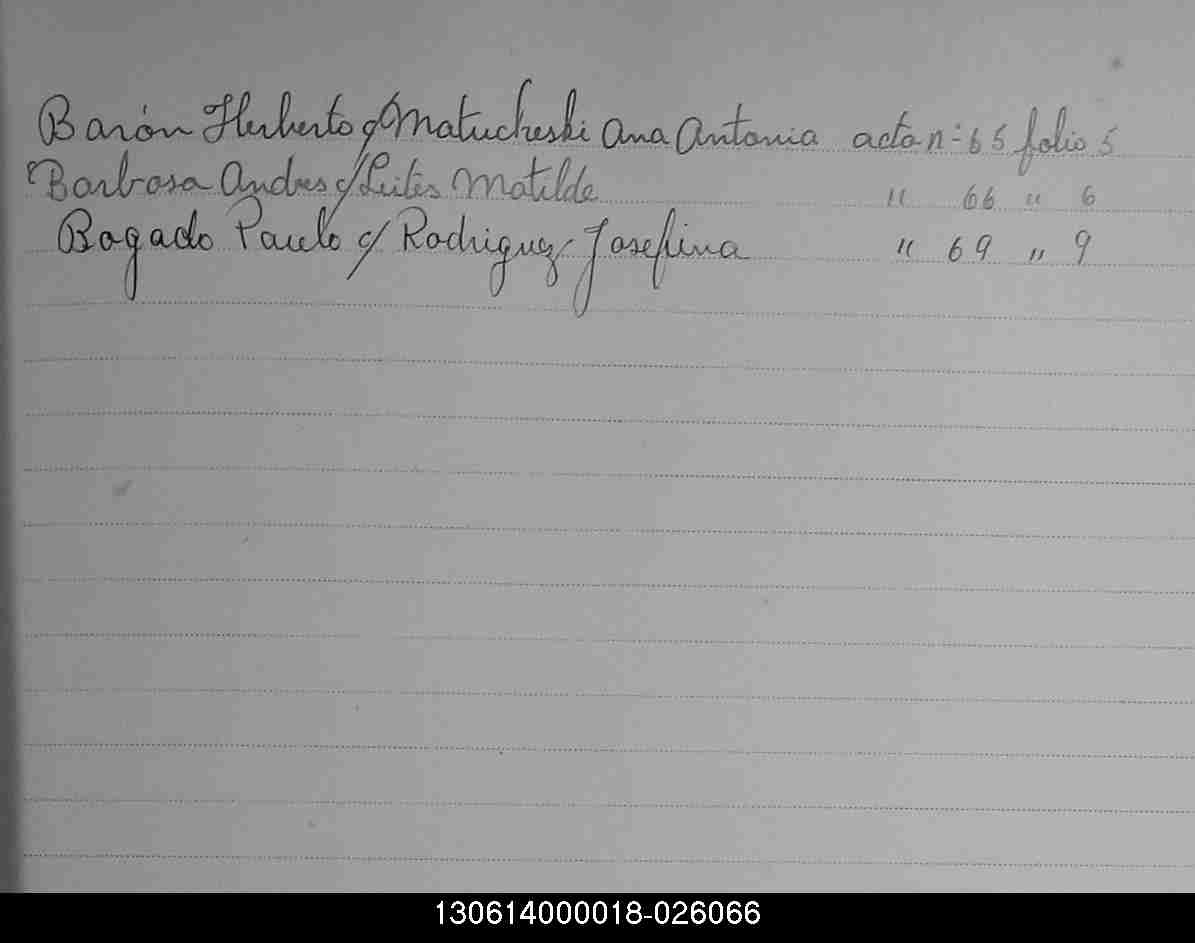 Barón Herberto c/ Matucheski Ana Antonia acta n: 65 folio 5
Barbosa Andres c/ Leites Matilde " 66 " 6
Bogado Paulo c/ Rodriguez Josefina " 69 " 9
130614000018-026066